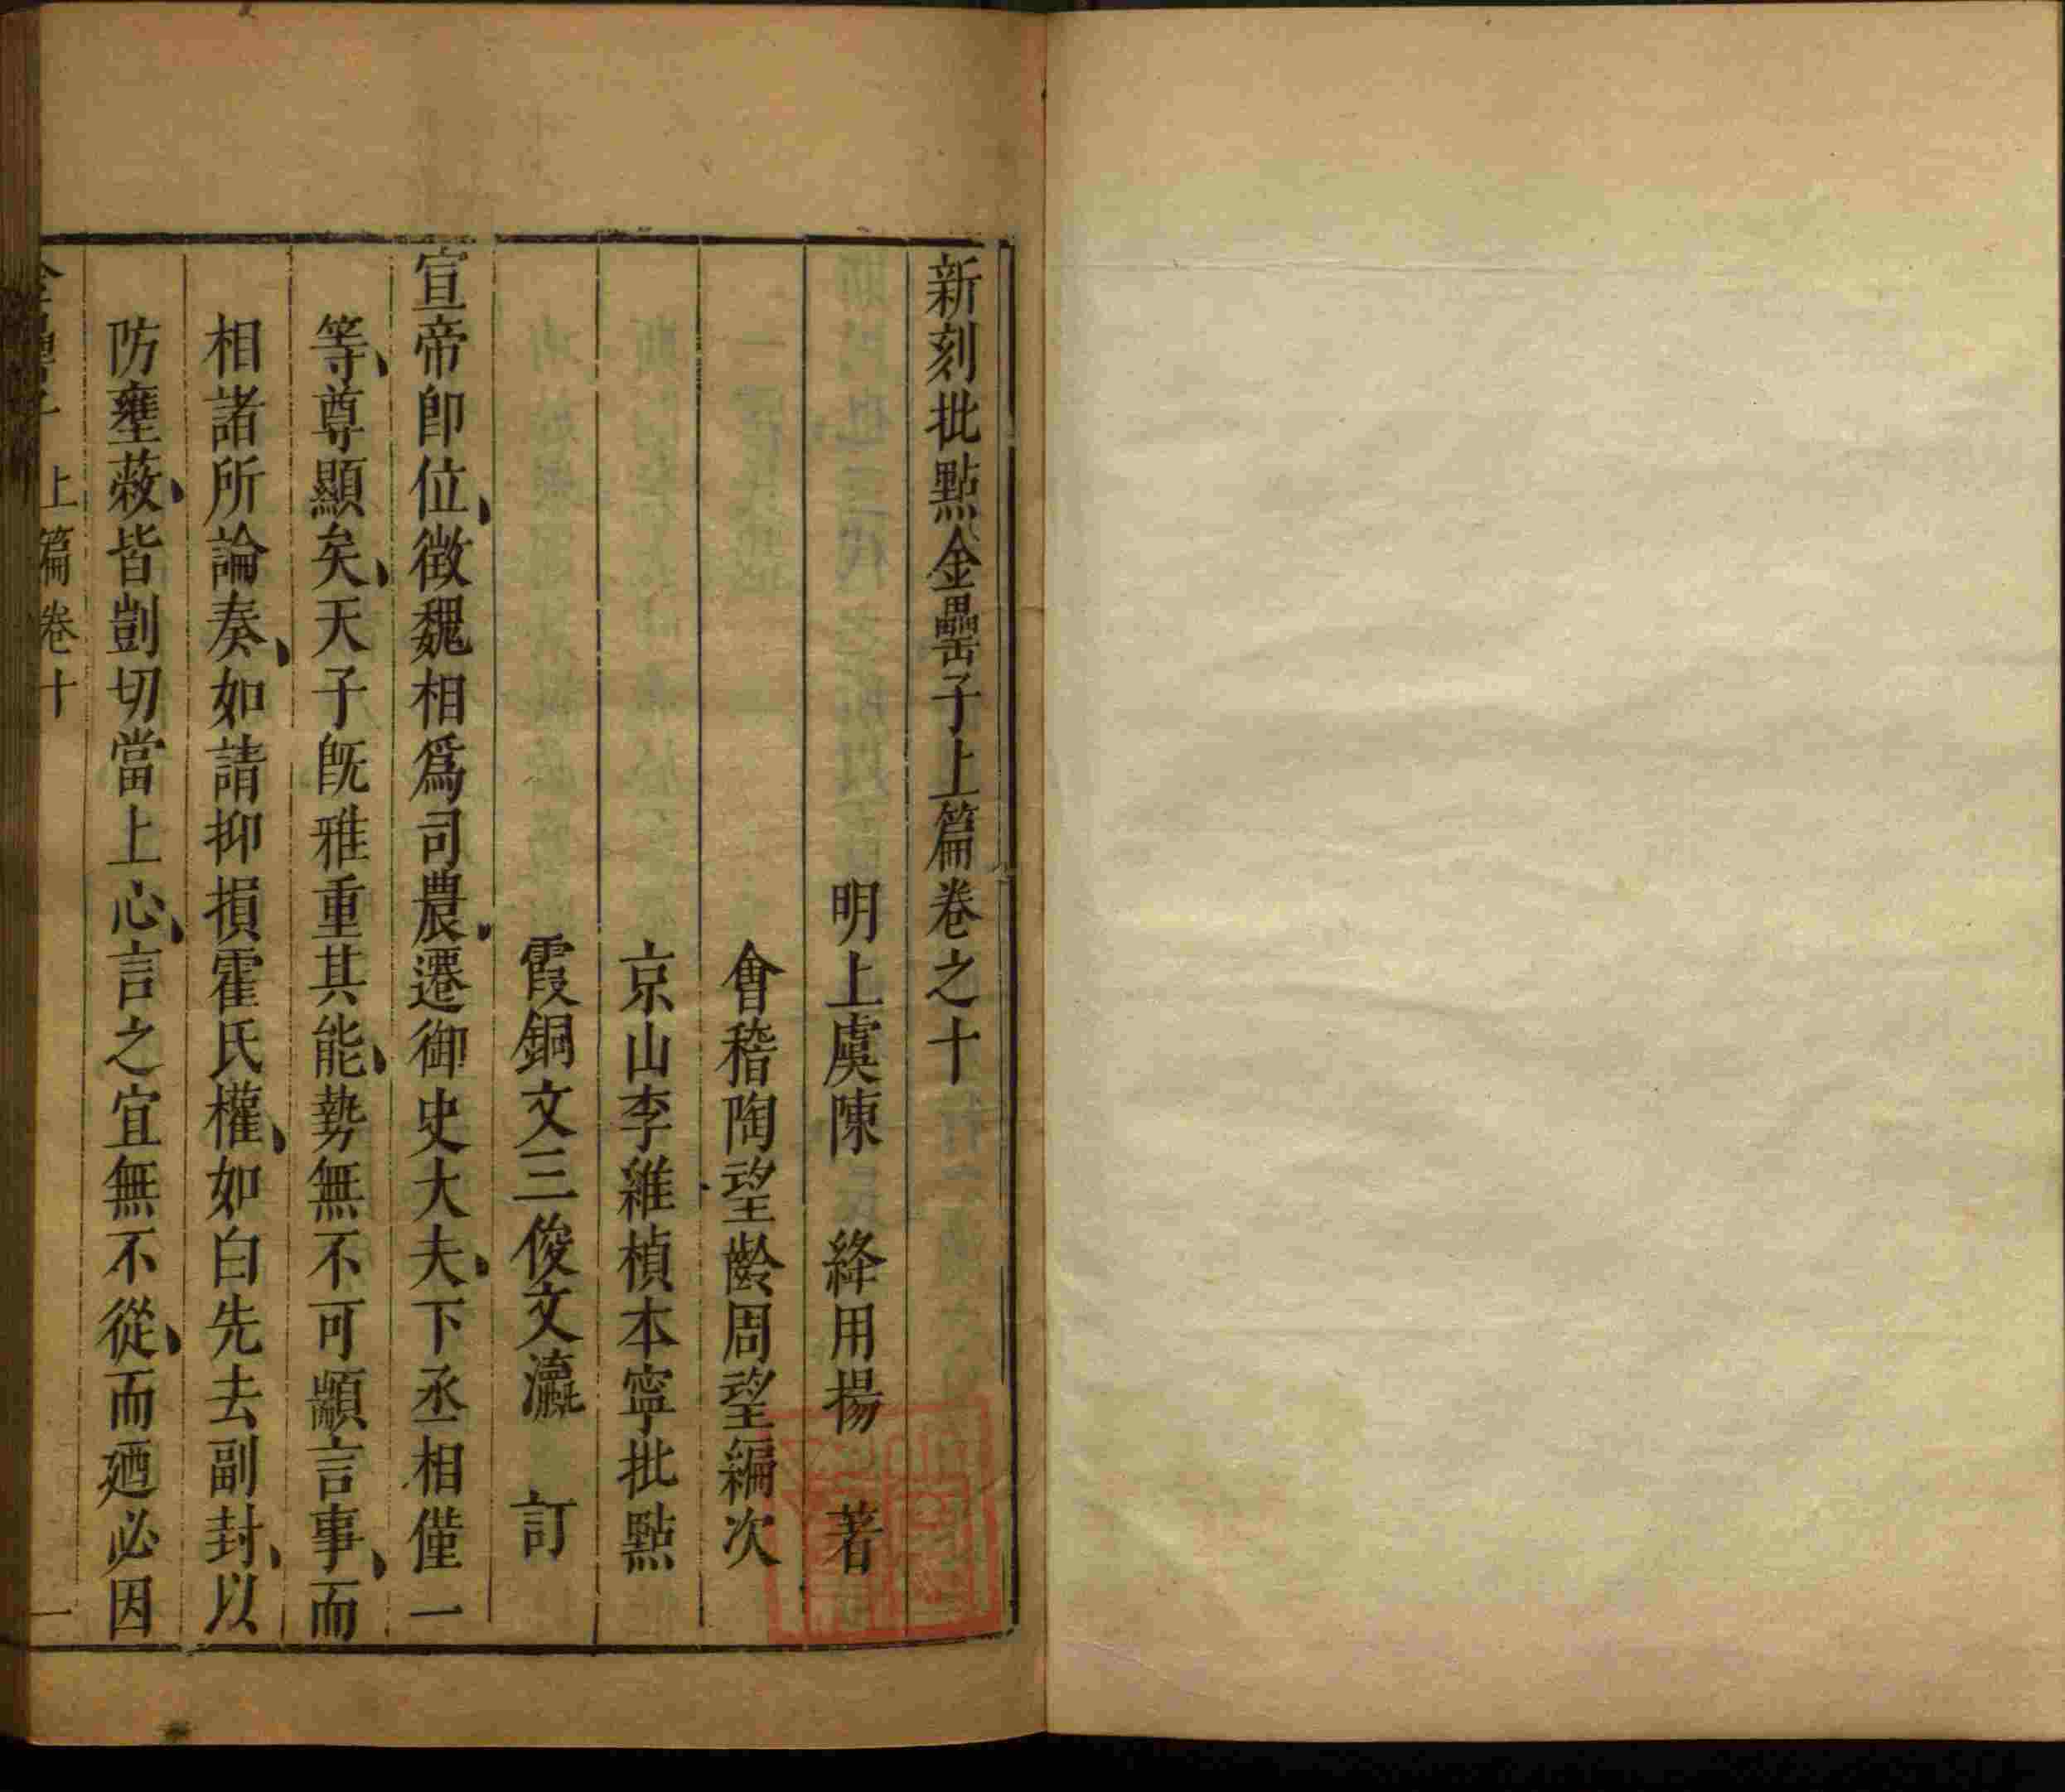 新刻批點金罍子上篇卷之十
明上虞陳　絳用揚　著
會稽陶望齡周望編次
京山李維楨本寧批點
霞銅文三俊文瀛　訂
宣帝卽位徴魏相爲司農遷御史大夫下丞相僅一
等尊顯矣天子旣雅重其能勢無不可顓言事而
相諸所論奏如請抑損霍氏權如白先去副封以
防壅蔽皆剴切當上心言之宜無不從而廼必因
金罍子　上篇卷十　一